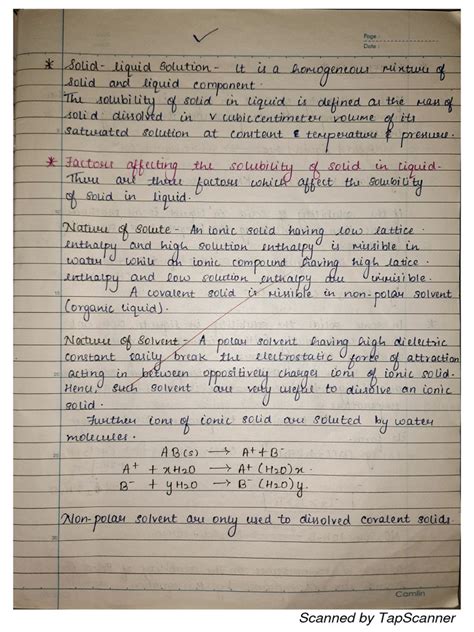 Page :
Date :
* Solid-liquid Solution - It is a homogeneous mixture of
solid and liquid component.
The solubility of solid in liquid is defined as the mass of
solid dissolved in v cubic centimeter volume of its
saturated solution at constant temperature & pressure.
* Factors affecting the solubility of solid in liquid-
There are three factors which affect the solubility
of solid in liquid.
Nature of solute - An ionic solid having low lattice
enthalpy and high solution enthalpy is missible in
water while an ionic compound having high latice
enthalpy and low solution enthalpy are immisible.
A covalent solid is missible in non-polar solvent
(organic liquid).
Nature of solvent - A polar solvent having high dielectric
constant easily break the electrostatic force of attraction
acting in between oppositively charges ions of ionic solid.
Hence, such solvent are very useful to dissolve an ionic
solid.
Further ions of ionic solid are soluted by water
molecules.
AB(s) → A⁺ + B⁻
A⁺ + xH2O → A⁺ (H2O)x.
B⁻ + yH2O → B⁻ (H2O)y.
Non-polar solvent are only used to dissolved covalent solids.
Camlin
Scanned by TapScanner